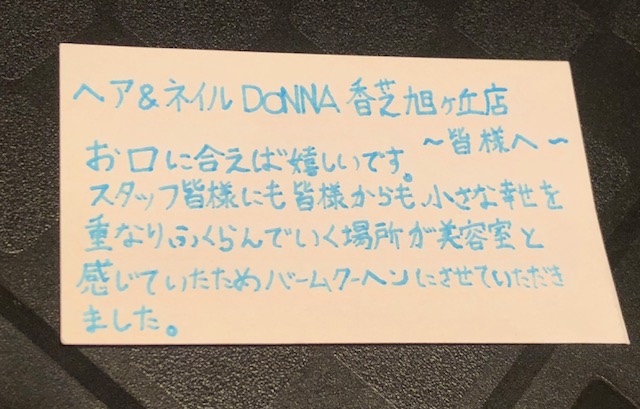 ヘア&ネイル DoNNA 香芝旭ヶ丘店
～皆様へ～
お口に合えば嬉しいです。
スタッフ皆様にも皆様からも、小さな幸せを
重なりふくらんでいく場所が美容室と
感じていたためバームクーヘンにさせていただき
ました。